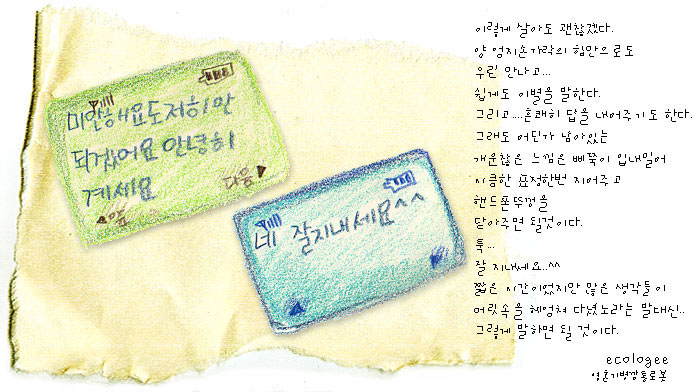 미안해요도저히안
되겠어요 안녕히
계세요
◀앞 다음▶
네 잘지내세요^^
이렇게 살아도 괜찮겠다.
양 엄지손가락의 힘만으로도
우린 만나고...
쉽게도 이별을 말한다.
그리고....흔쾌히 답을 내어주기도 한다.
그래도 어딘가 남아있는
개운찮은 느낌은 삐쭉이 입내밀어
시큼한 표정한번 지어주고
핸드폰뚜껑을
닫아주면 될것이다.
툭...
잘 지내세요..^^
짧은 시간이었지만 많은 생각들이
머릿속을 헤엉쳐 다녔노라는 말대신..
그렇게 말하면 될 것이다.
ecologee
영혼기병깡통로봇